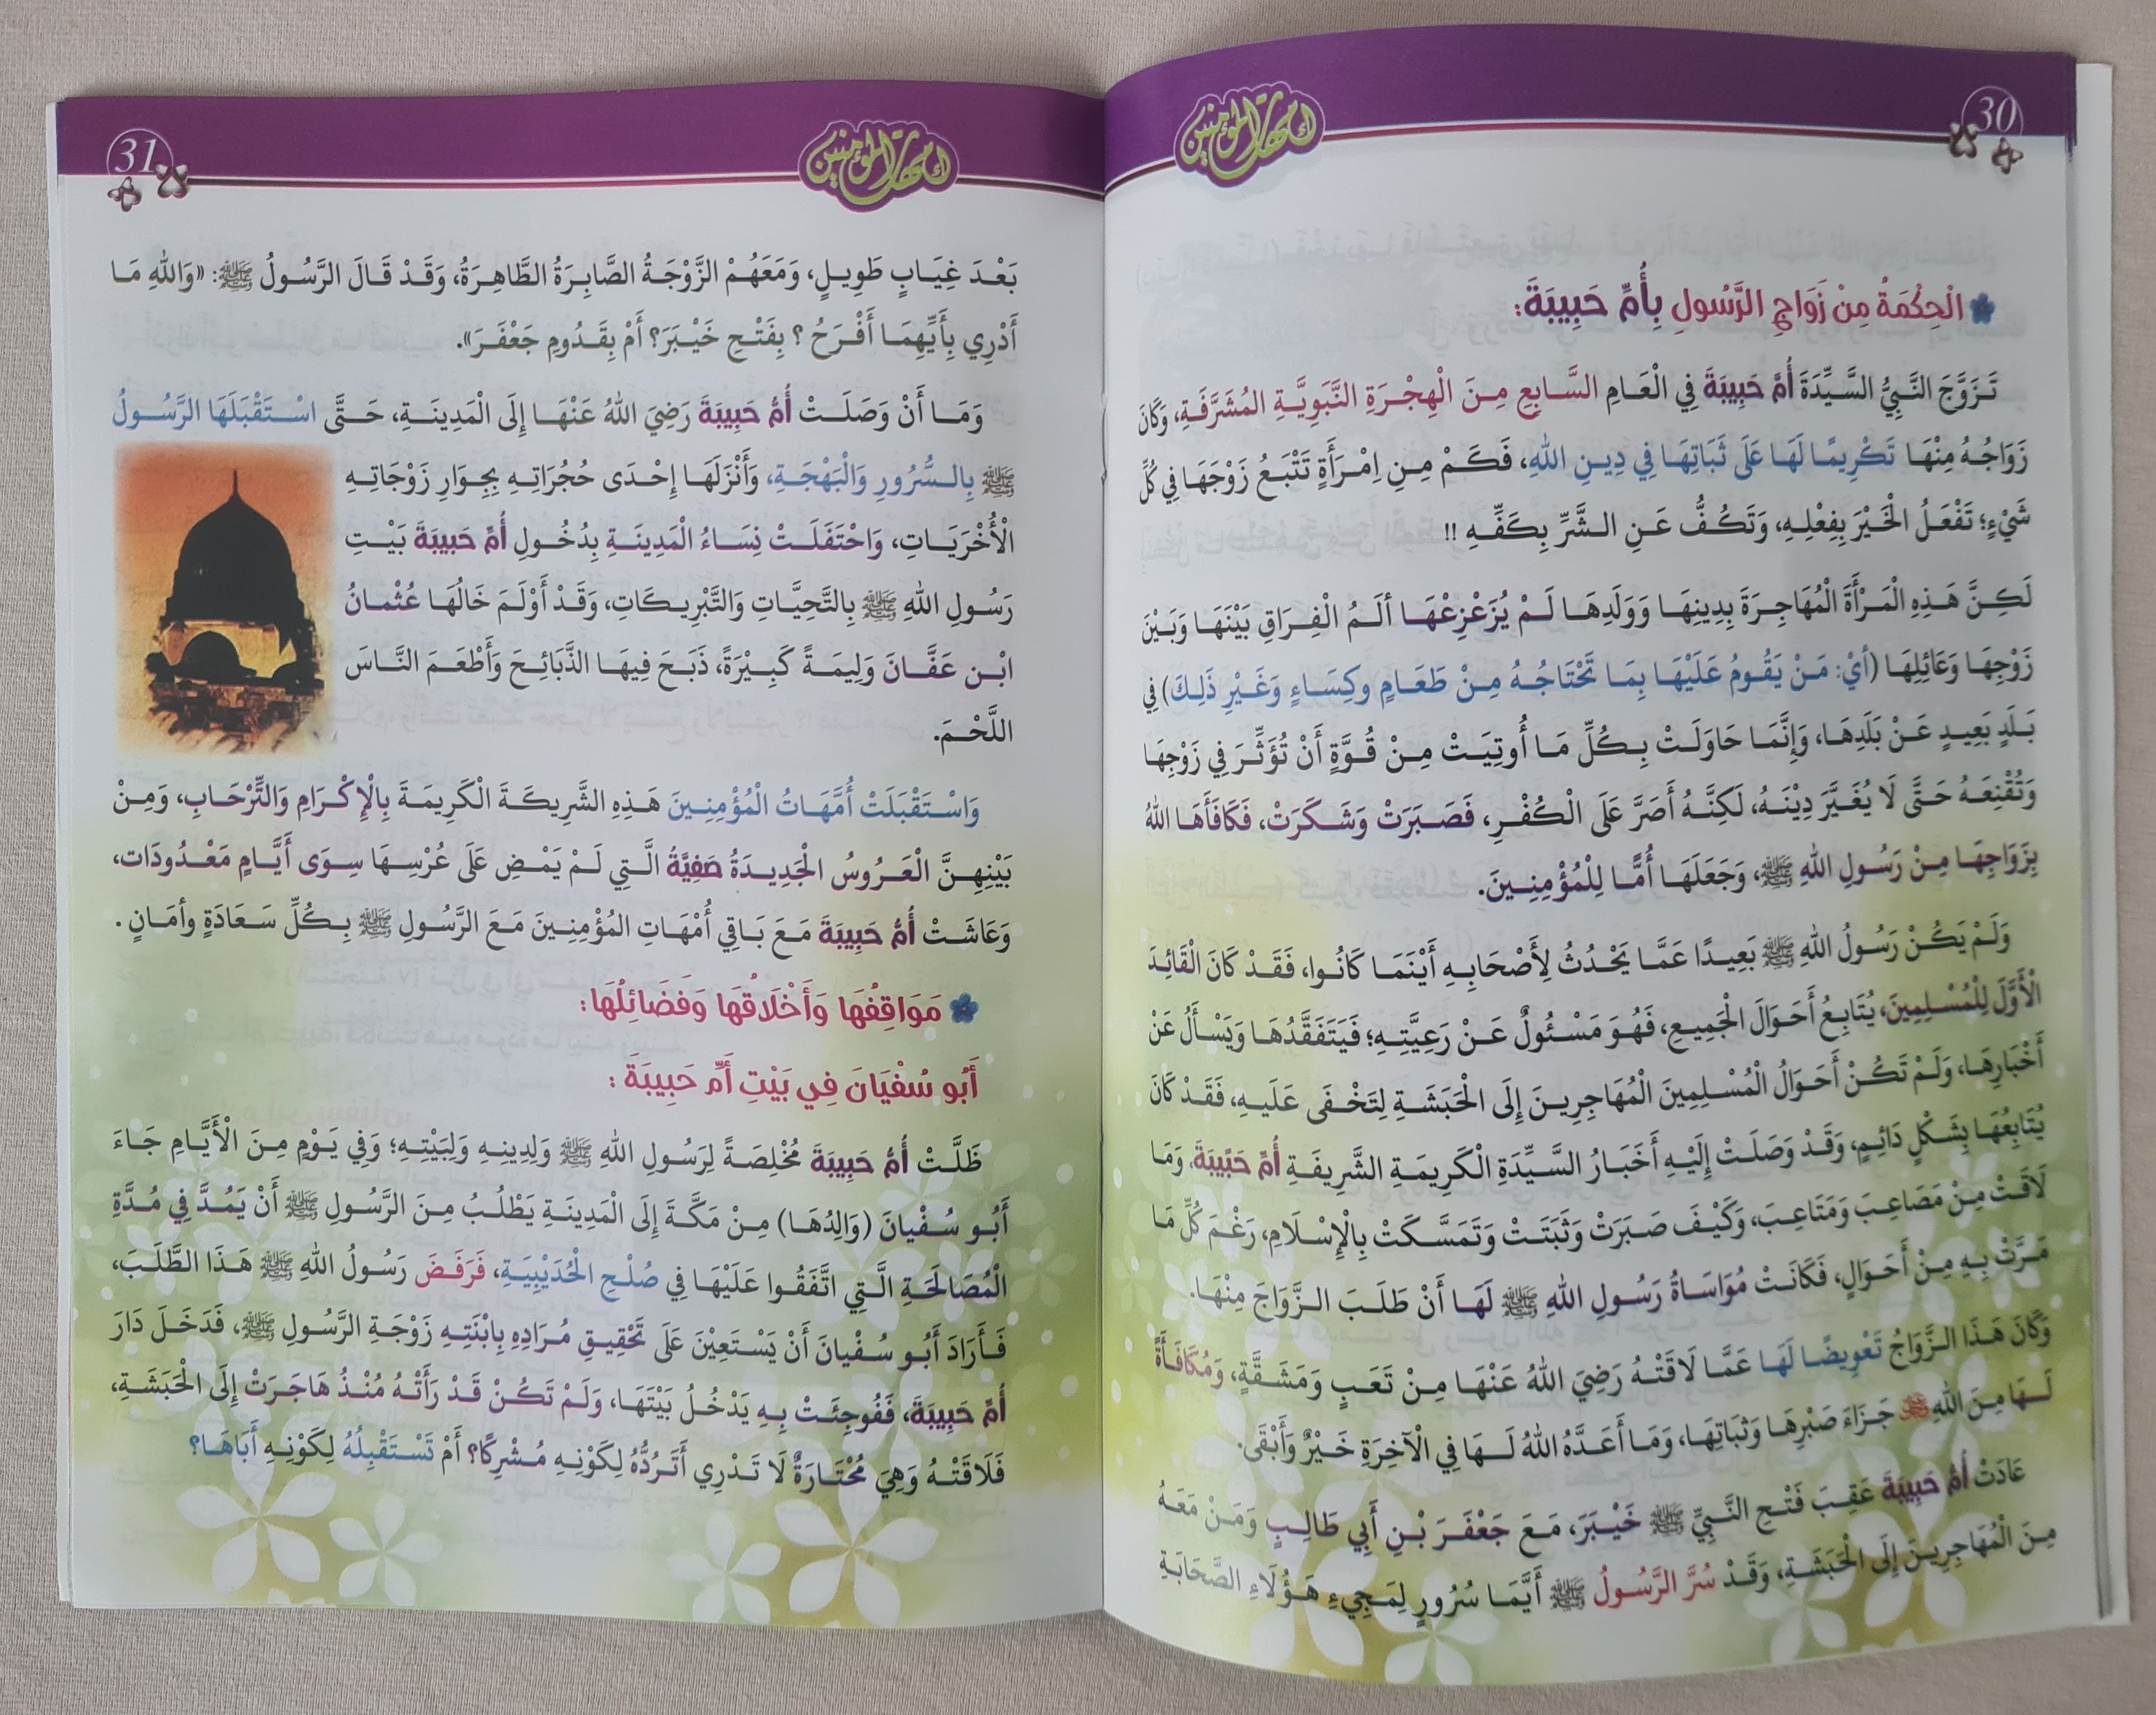 30
أمهات المؤمنين
الْحِكْمَةُ مِنْ زَوَاجِ الرَّسُولِ بِأُمِّ حَبِيبَةَ:
تَزَوَّجَ النَّبِيُّ السَّيِّدَةَ أُمَّ حَبِيبَةَ فِي الْعَامِ السَّابِعِ مِنَ الْهِجْرَةِ النَّبَوِيَّةِ الْمُشَرَّفَةِ، وَكَانَ
زَوَاجُهُ مِنْهَا تَكْرِيمًا لَهَا عَلَى ثَبَاتِهَا فِي دِينِ اللهِ، فَكَمْ مِنِ امْرَأَةٍ تَتْبَعُ زَوْجَهَا فِي كُلِّ
شَيْءٍ؛ تَفْعَلُ الْخَيْرَ بِفِعْلِهِ، وَتَكُفُّ عَنِ الشَّرِّ بِكَفِّهِ !!
لَكِنَّ هَذِهِ الْمَرْأَةَ الْمُهَاجِرَةَ بِدِينِهَا وَوَلَدِهَا لَمْ يُزَعْزِعْهَا أَلَمُ الْفِرَاقِ بَيْنَهَا وَبَيْنَ
زَوْجِهَا وَعَائِلِهَا (أَيْ: مَنْ يَقُومُ عَلَيْهَا بِمَا تَحْتَاجُهُ مِنْ طَعَامٍ وكِسَاءٍ وَغَيْرِ ذَلِكَ) فِي
بَلَدٍ بَعِيدٍ عَنْ بَلَدِهَا، وَإِنَّمَا حَاوَلَتْ بِكُلِّ مَا أُوتِيَتْ مِنْ قُوَّةٍ أَنْ تُؤَثِّرَ فِي زَوْجِهَا
وَتُقْنِعَهُ حَتَّى لَا يُغَيَّرَ دِيْنَهُ، لَكِنَّهُ أَصَرَّ عَلَى الْكُفْرِ، فَصَبَرَتْ وَشَكَرَتْ، فَكَافَأَهَا اللهُ
بِزَوَاجِهَا مِنْ رَسُولِ اللهِ ﷺ، وَجَعَلَهَا أُمًّا لِلْمُؤْمِنِينَ.
وَلَمْ يَكُنْ رَسُولُ اللهِ ﷺ بَعِيدًا عَمَّا يَحْدُثُ لِأَصْحَابِهِ أَيْنَمَا كَانُوا، فَقَدْ كَانَ الْقَائِدَ
الْأَوَّلَ لِلْمُسْلِمِينَ، يُتَابِعُ أَحَوَالَ الْجَمِيعِ، فَهُوَ مَسْئُولٌ عَنْ رَعِيَّتِهِ؛ فَيَتَفَقَّدُهَا وَيَسْأَلُ عَنْ
أَخْبَارِهَا، وَلَمْ تَكُنْ أَحَوَالُ الْمُسْلِمِينَ الْمُهَاجِرِينَ إِلَى الْحَبَشَةِ لِتَخْفَى عَلَيهِ، فَقَدْ كَانَ
يُتَابِعُهَا بِشَكْلٍ دَائِمٍ، وَقَدْ وَصَلَتْ إِلَيْهِ أَخَبَارُ السَّيِّدَةِ الْكَرِيمَةِ الشَّرِيفَةِ أُمِّ حَبِيبَةَ، وَمَا
لَاقَتْ مِنْ مَصَاعِبَ وَمَتَاعِبَ، وَكَيْفَ صَبَرَتْ وَثَبَتَتْ وَتَمَسَّكَتْ بِالْإِسْلَامِ، رَغْمَ كُلِّ مَا
مَرَّتْ بِهِ مِنْ أَحَوَالٍ، فَكَانَتْ مُوَاسَاةُ رَسُولِ اللهِ ﷺ لَهَا أَنْ طَلَبَ الزَّوَاجَ مِنْهَا.
وَكَانَ هَذَا الزَّوَاجُ تَعْوِيضًا لَهَا عَمَّا لَاقَتْهُ رَضِيَ اللهُ عَنْهَا مِنْ تَعَبٍ وَمَشَقَّةٍ، وَمُكَافَأَةً
لَهَا مِنَ اللهِ جَزَاءَ صَبْرِهَا وَثَبَاتِهَا، وَمَا أَعَدَّهُ اللهُ لَهَا فِي الْآخِرَةِ خَيْرٌ وَأَبْقَى.
عَادَتْ أُمُّ حَبِيبَةَ عَقِبَ فَتْحِ النَّبِيِّ ﷺ خَيْبَرَ، مَعَ جَعْفَرَ بْنِ أَبِي طَالِبٍ وَمَنْ مَعَهُ
مِنَ الْمُهَاجِرِينَ إِلَى الْحَبَشَةِ، وَقَدْ سُرَّ الرَّسُولُ ﷺ أَيَّمَا سُرُورٍ لِمَجِيءِ هَؤُلَاءِ الصَّحَابَةِ
31
أمهات المؤمنين
بَعْدَ غِيَابٍ طَوِيلٍ، وَمَعَهُمْ الزَّوْجَةُ الصَّابِرَةُ الطَّاهِرَةُ، وَقَدْ قَالَ الرَّسُولُ ﷺ: «وَاللهِ مَا
أَدْرِي بِأَيِّهِمَا أَفْرَحُ ؟ بِفَتْحِ خَيْبَرَ؟ أَمْ بِقَدُومِ جَعْفَرَ».
وَمَا أَنْ وَصَلَتْ أُمُّ حَبِيبَةَ رَضِيَ اللهُ عَنْهَا إِلَى الْمَدِينَةِ، حَتَّى اسْتَقْبَلَهَا الرَّسُولُ
ﷺ بِالسُّرُورِ وَالْبَهْجَةِ، وَأَنْزَلَهَا إِحْدَى حُجُرَاتِهِ بِجِوَارِ زَوْجَاتِهِ
الْأُخْرَيَاتِ، وَاحْتَفَلَتْ نِسَاءُ الْمَدِينَةِ بِدُخُولِ أُمِّ حَبِيبَةَ بَيْتِ
رَسُولِ اللهِ ﷺ بِالتَّحِيَّاتِ وَالتَّبْرِيكَاتِ، وَقَدْ أَوْلَمَ خَالُهَا عُثْمانُ
ابْن عَفَّانَ وَلِيمَةً كَبِيْرَةً، ذَبَحَ فِيهَا الذَّبَائِحَ وَأَطْعَمَ النَّاسَ
اللَّحْمَ.
وَاسْتَقْبَلَتْ أُمَّهَاتُ الْمُؤْمِنِينَ هَذِهِ الشَّرِيكَةَ الْكَرِيمَةَ بِالْإِكْرَامِ وَالتِّرْحَابِ، وَمِنْ
بَيْنِهِنَّ الْعَرُوسُ الْجَدِيدَةُ صَفِيَّةُ الَّتِي لَمْ يَمْضِ عَلَى عُرْسِهَا سِوَى أَيَّامٍ مَعْدُودَات،
وَعَاشَتْ أُمُّ حَبِيبَةَ مَعَ بَاقِي أُمْهَاتِ المُؤْمِنِينَ مَعَ الرَّسُولِ ﷺ بِكُلِّ سَعَادَةٍ وأمَانٍ .
مَوَاقِفُهَا وَأَخْلَاقُهَا وَفَضَائِلُهَا:
أَبُو سُفْيَانَ فِي بَيْتِ أُمِّ حَبِيبَةَ :
ظَلَّتْ أُمُّ حَبِيبَةَ مُخْلِصَةً لِرَسُولِ اللهِ ﷺ وَلِدِينِهِ وَلِبَيْتِهِ؛ وَفِي يَوْمٍ مِنَ الْأَيَّامِ جَاءَ
أَبُو سُفْيانَ (وَالِدُهَا) مِنْ مَكَّةَ إِلَى الْمَدِينَةِ يَطْلُبُ مِنَ الرَّسُولِ ﷺ أَنْ يَمُدَّ فِي مُدَّةِ
الْمُصَالَحَةِ الَّتِي اتَّفَقُوا عَلَيْهَا فِي صُلْحِ الْحُدَيْبِيَةِ، فَرَفَضَ رَسُولُ اللهِ ﷺ هَذَا الطَّلَبَ،
فَأَرَادَ أَبُو سُفْيانَ أَنْ يَسْتَعِيْنَ عَلَى تَحْقِيقِ مُرَادِهِ بِابْنَتِهِ زَوْجَةِ الرَّسُولِ ﷺ، فَدَخَلَ دَارَ
أُمِّ حَبِيبَةَ، فَفُوجِئَتْ بِهِ يَدْخُلُ بَيْتَهَا، وَلَمْ تَكُنْ قَدْ رَأَتْهُ مُنْذُ هَاجَرَتْ إِلَى الْحَبَشَةِ،
فَلَاقَتْهُ وَهِيَ مُحْتَارَةٌ لَا تَدْرِي أَتَرُدُّهُ لِكَوْنِهِ مُشْرِكًا؟ أَمْ تَسْتَقْبِلُهُ لِكَوْنِهِ أَبَاهَا؟